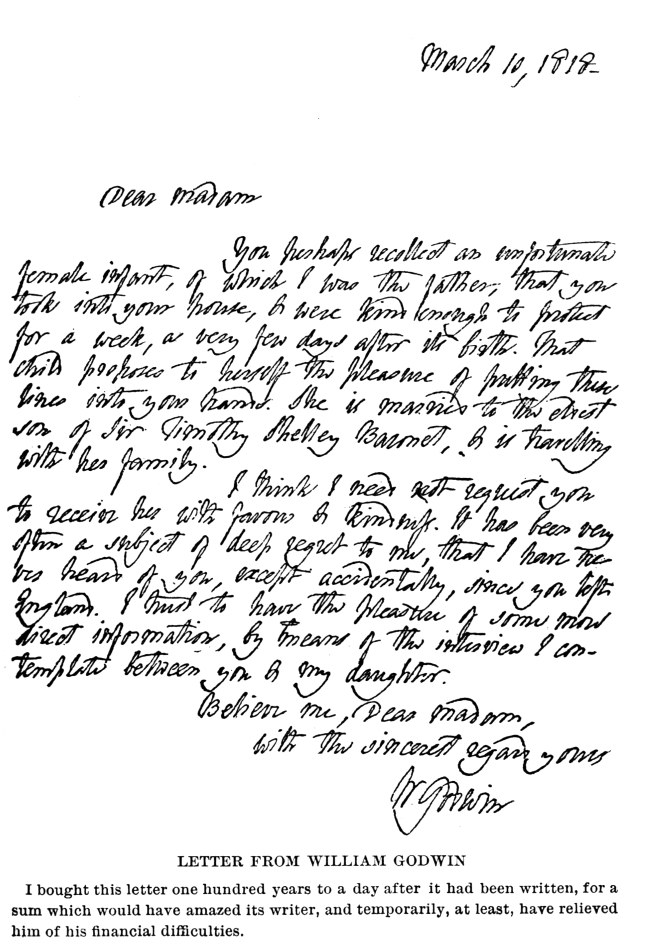 March 10, 1818-
Dear Madam
You perhaps recollect an unfortunate
female infant, of which I was the father, that you
took into your house, & were kind enough to protect
for a week, a very few days after its birth. That
child proposes to herself the pleasure of putting these
lines into your hands. She is married to the eldest
son of Sir Timothy Shelley Baronet, & is travelling
with her family.
I think I need not request you
to receive her with favour & kindness. It has been very
often a subject of deep regret to me, that I have ne-
ver heard of you, except accidentally, since you left
England. I trust to have the pleasure of some more
direct information, by means of the interview I con-
template between you & my daughter.
Believe me, Dear Madam,
with the sincerest regard yours
W Godwin
LETTER FROM WILLIAM GODWIN
I bought this letter one hundred years to a day after it had been written, for a
sum which would have amazed its writer, and temporarily, at least, have relieved
him of his financial difficulties.